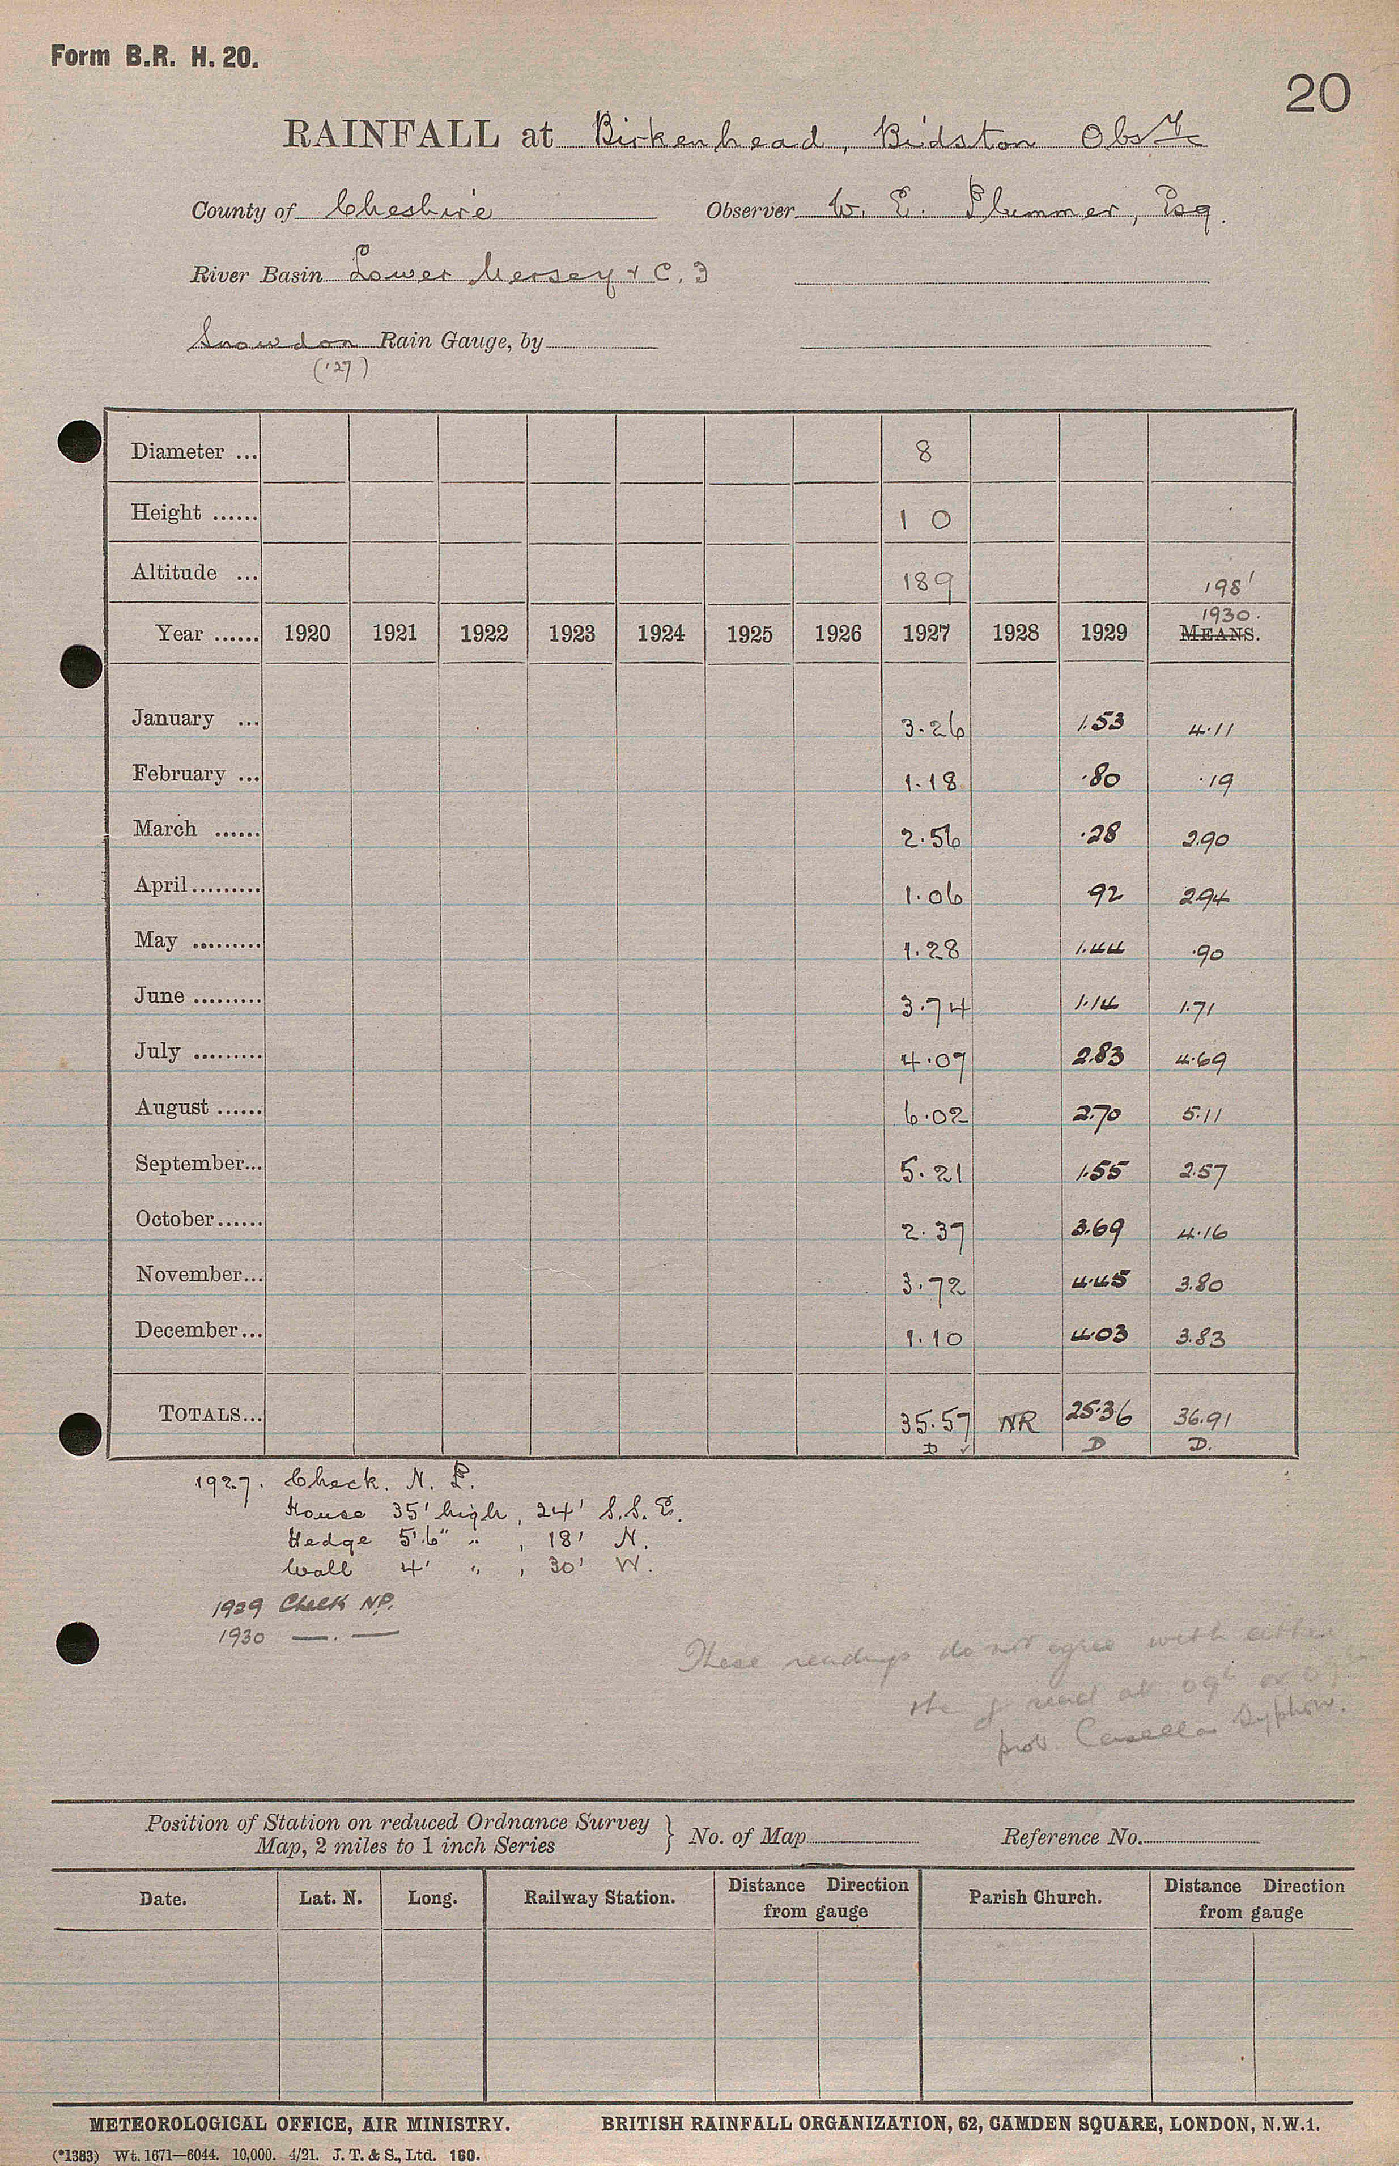 Form B.R. H. 20.
20
RAINFALL at Birkenhead, Bidston Obsy
County of Cheshire Observer W. E. Plummer, Esq.
River Basin Lower Mersey + C. 3
Snowdon Rain Gauge, by
('27)
Diameter ... 8
Height ...... 10
Altitude ... 189 198'
1930.
Year ...... 1920 1921 1922 1923 1924 1925 1926 1927 1928 1929 MEANS.
January ... 3.26 1.53 4.11
February ... 1.18 .80 .19
March ...... 2.56 .28 2.90
April......... 1.06 92 2.94
May ......... 1.28 1.44 .90
June ......... 3.74 1.14 1.71
July ......... 4.07 2.83 4.69
August ...... 6.02 2.70 5.11
September... 5.21 1.55 2.57
October...... 2.37 3.69 4.16
November... 3.72 4.45 3.80
December... 1.10 4.03 3.83
TOTALS... 35.57 NR 25.36 36.91
D ✓ D D.
1927. Check. N. P.
House 35' high, 24' S.S.E.
Hedge 5'6" " , 18' N.
Wall 4' " , 30' W.
1929 Check NP.
1930 —.—
These readings do not agree with either
the read at 09h or
prob. Casella Syphon.
Position of Station on reduced Ordnance Survey
Map, 2 miles to 1 inch Series } No. of Map Reference No.
Date. Lat. N. Long. Railway Station. Distance Direction from gauge Parish Church. Distance Direction from gauge
METEOROLOGICAL OFFICE, AIR MINISTRY. BRITISH RAINFALL ORGANIZATION, 62, CAMDEN SQUARE, LONDON, N.W.1.
(*1383) Wt. 1671—6044. 10,000. 4/21. J. T. & S., Ltd. 160.